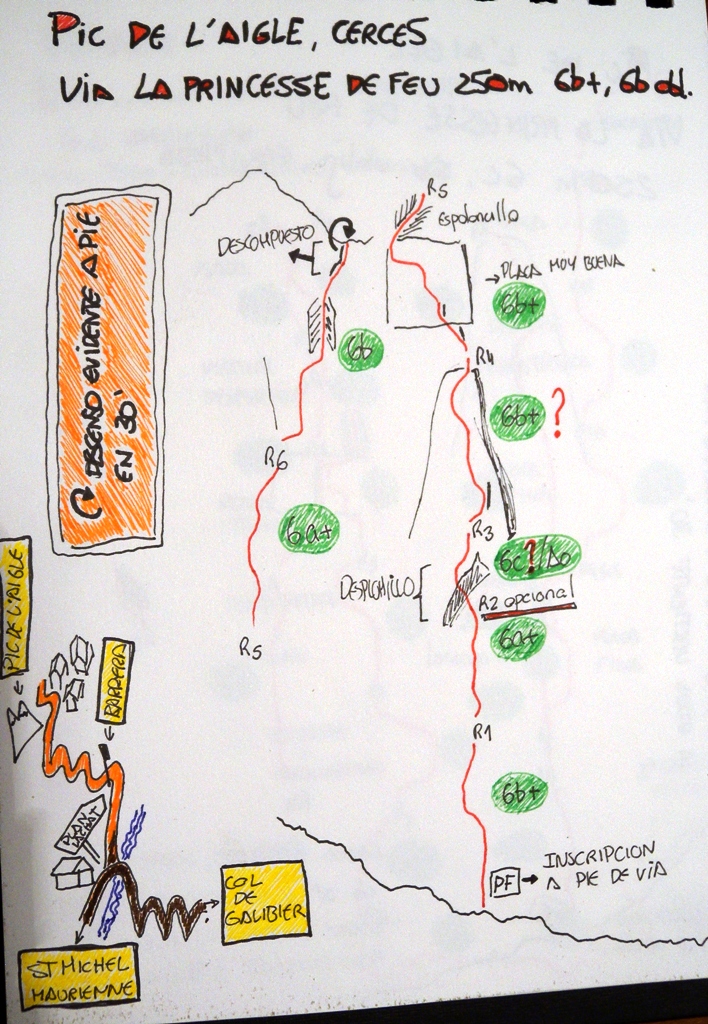 PIC DE L'AIGLE, CERCES
VIA LA PRINCESSE DE FEU 250m 6b+, 6b obl.
R5
Espoloncillo
DESCOMPUESTO
→ PLACA MUY BUENA
6b+
6b
R4
6b+ ?
DESCENSO EVIDENTE A PIE
EN 30'
R6
6a+
R3
6c?/A0
DESPLOMILLO
R2 opcional
6a+
R5
PIC DE L'AIGLE
BARRERA
R1
6b+
PLAN
LACHAT
PF → INSCRIPCION
A PIE DE VIA
COL
DE
GALIBIER
ST MICHEL
MAURIENNE